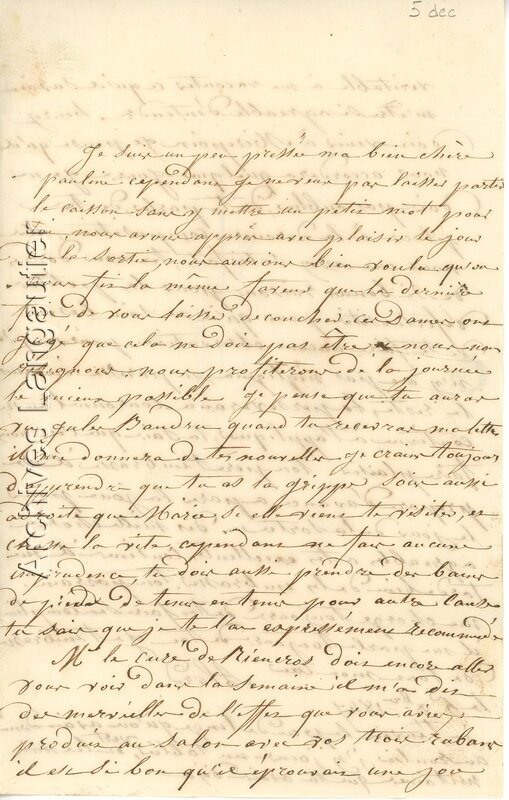 5 dec
Je suis un peu pressée ma bien chère
pauline cependant je ne veux pas laisser partir
le caisson sans y mettre un petit mot pour
toi, nous avons appris avec plaisir le jour
de la sortie, nous aurions bien voulu qu'on
vous fis la même faveur que la dernière
fois de vous laisser decoucher, ces Dames ont
jugé que cela ne dois pas être nous nous
resignons nous profiterons de la journée
le mieux possible je pense que tu auras
vu Jules Baudru quand tu recevras ma lettre
il me donnera de tes nouvelles je crains toujours
d'apprendre que tu as la grippe sois aussi
adroite que Marie si elle viens te visiter, et
chasse la vite, cependant ne fais aucune
imprudence, tu dois aussi prendre des bains
de pieds de tems en tems pour autre cause
tu sais que je te l'ai expressément recommandé
Mr le curé de Rieucros dois encore aller
vous voir dans la semaine il m'a dit
des merveilles de l'effet que vous aviez
produit au salon avec vos trois rubans
il est si bon qu'il éprouvait une joie
Archives Langautier